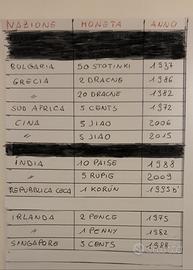 NAZIONE MONETA ANNO
BULGARIA 50 STOTINKI 1937
GRECIA 2 DRACNE 1986
" 20 DRACNE 1982
SUD AFRICA 5 CENTS 1972
CINA 5 JIAO 2006
" 5 JIAO 2015
INDIA 10 PAISE 1988
" 5 RUPIE 2009
REPUBBLICA CECA 1 KORUN
IRLANDA 2 PENCE 1975
" 1 PENNY 1982
SINGAPORE 5 CENTS 1988